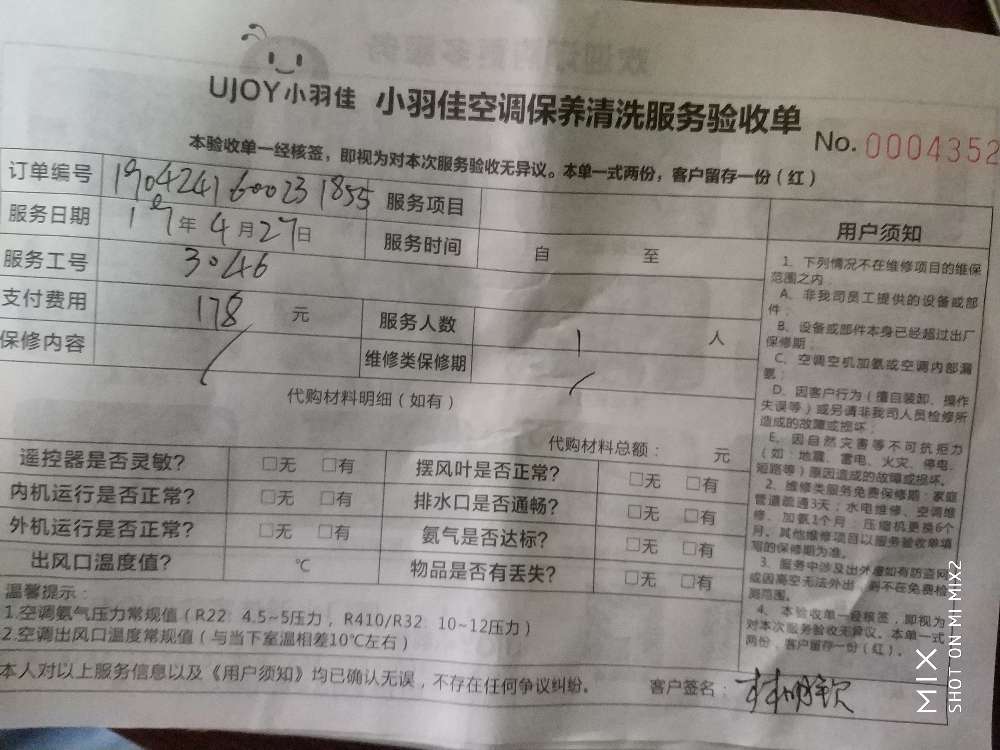 UJOY小羽佳 小羽佳空调保养清洗服务验收单
No. 0004352
本验收单一经核签，即视为对本次服务验收无异议。本单一式两份，客户留存一份（红）
订单编号 1904241600231855 服务项目
服务日期 19年4月27日 服务时间 自 至
服务工号 3046
支付费用 178 元 服务人数 1 人
保修内容 / 维修类保修期 /
代购材料明细（如有）
代购材料总额： 元
遥控器是否灵敏？ □无 □有 摆风叶是否正常？ □无 □有
内机运行是否正常？ □无 □有 排水口是否通畅？ □无 □有
外机运行是否正常？ □无 □有 氨气是否达标？ □无 □有
出风口温度值？ ℃ 物品是否有丢失？ □无 □有
温馨提示：
1.空调氨气压力常规值（R22：4.5~5压力，R410/R32：10~12压力）
2.空调出风口温度常规值（与当下室温相差10℃左右）
本人对以上服务信息以及《用户须知》均已确认无误，不存在任何争议纠纷。 客户签名：
用户须知
1、下列情况不在维修项目的维保
范围之内：
A、非我司员工提供的设备或部
件；
B、设备或部件本身已经超过出厂
保修期；
C、空调空机加氨或空调内部漏
氨；
D、因客户行为（擅自装卸、操作
失误等）或另请非我司人员检修所
造成的故障或损坏；
E、因自然灾害等不可抗拒力
（如：地震、雷电、火灾、停电、
短路等）原因造成的故障或损坏。
2、维修类服务免费保修期：家庭
管道疏通3天；水电维修、空调维
修、加氨1个月；压缩机更换6个
月。其他维修项目以服务验收单填
写的保修期为准。
3、服务中涉及出外墙如有防盗网
或因高空无法外出，则不在免费检
测范围。
4、本验收单一经核签，即视为
对本次服务验收无异议。本单一式
两份，客户留存一份（红）。
MIX
SHOT ON MI MIX2